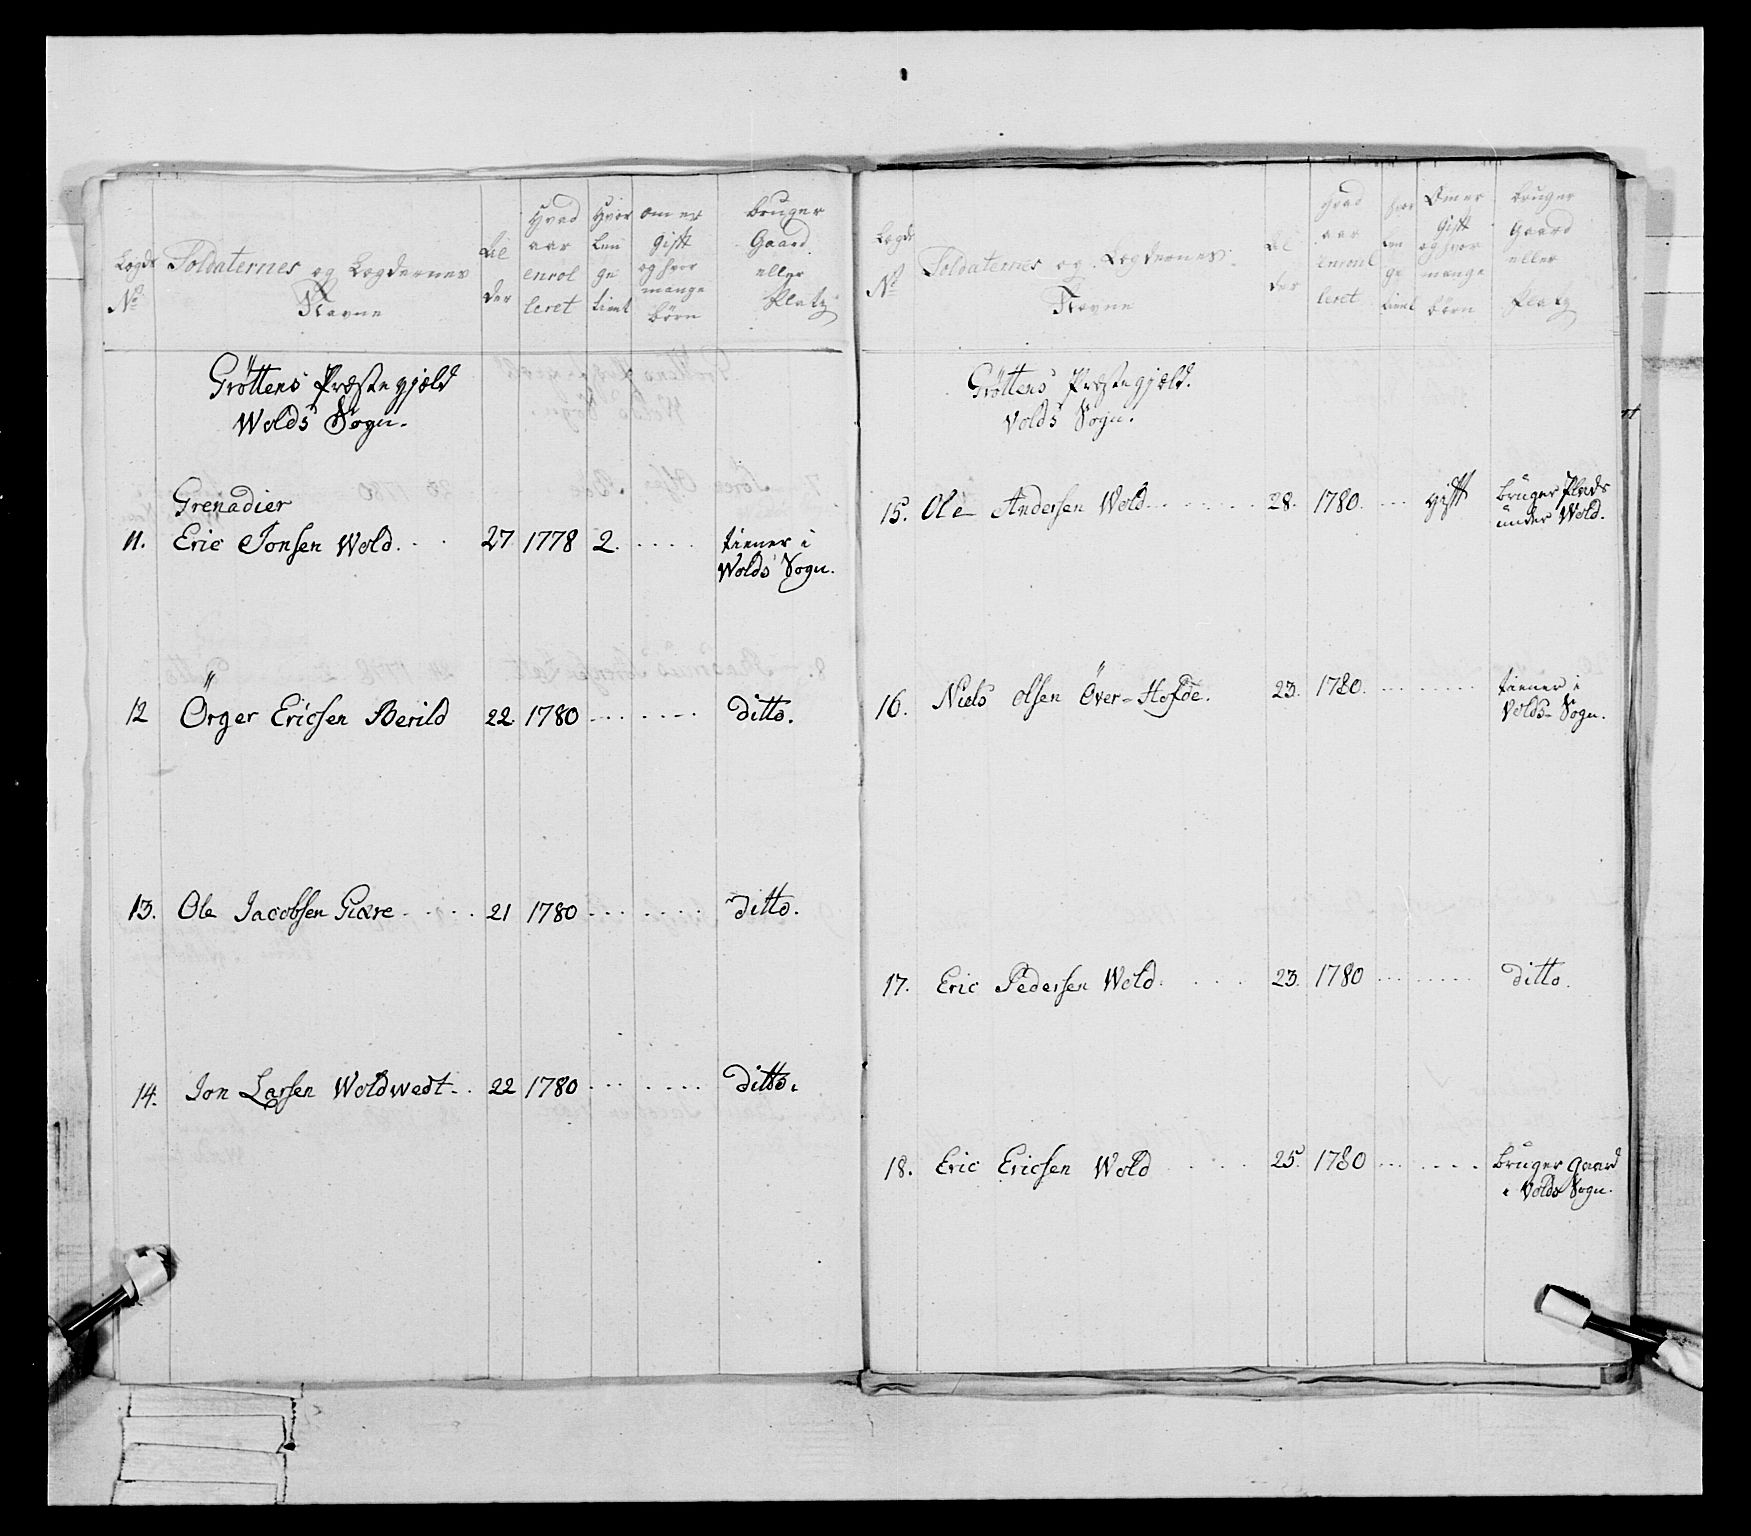 Legds No | Soldaternes og Legdernes Navne | Al der | Hvad aar enrol leret | Hvor len ge tient | om er gift og hvor mange börn | bruger Gaard eller Platz
Gröttens Præstegjæld
Wolds Sogn.
Grenadier
11. Eric Jonsen Wold. . . 27 1778 2. . . . . tiener i
Wolds Sogn.
12 Örger Ericsen Berild 22. 1780 . . . . . . . ditto.
13. Ole Jacobsen Giære . . . . . 21 1780 . . . . . . . ditto.
14. Jon Larsen Woldwedt . . 22 1780 . . . . . . . ditto.
Legds No | Soldaternes og Legdernes Navne | Al der | Hvad aar enroul leret | hvor len ge tient | Om er gift og hvor mange börn | bruger Gaard eller Platz
Gröttens Præstegjæld.
Volds Sogn.
15. Ole Andersen Wold . . . . . . 28. 1780. . . . gift bruger Plads
under Wold.
16. Niels Olsen Över-Hofde. 23. 1780. . . . . . . . tiener i
Volds Sogn.
17. Eric Pedersen Wold . . . . 23. 1780 . . . . . . . ditto.
18. Eric Ericsen Wold . . . . 25. 1780 . . . . . . . bruger gaard
i Volds Sogn.